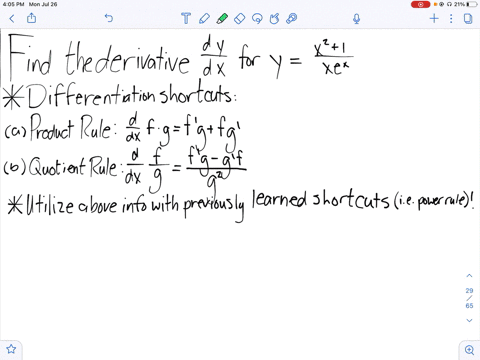 4:05 PM Mon Jul 26
21%
Find the derivative dy/dx for y = (x² + 1)/(xeˣ)
* Differentiation shortcuts:
(a) Product Rule: d/dx f·g = f'g + fg'
(b) Quotient Rule: d/dx f/g = (f'g - g'f)/g²
* Utilize above info with previously learned shortcuts (i.e. power rule)!
29
/
65